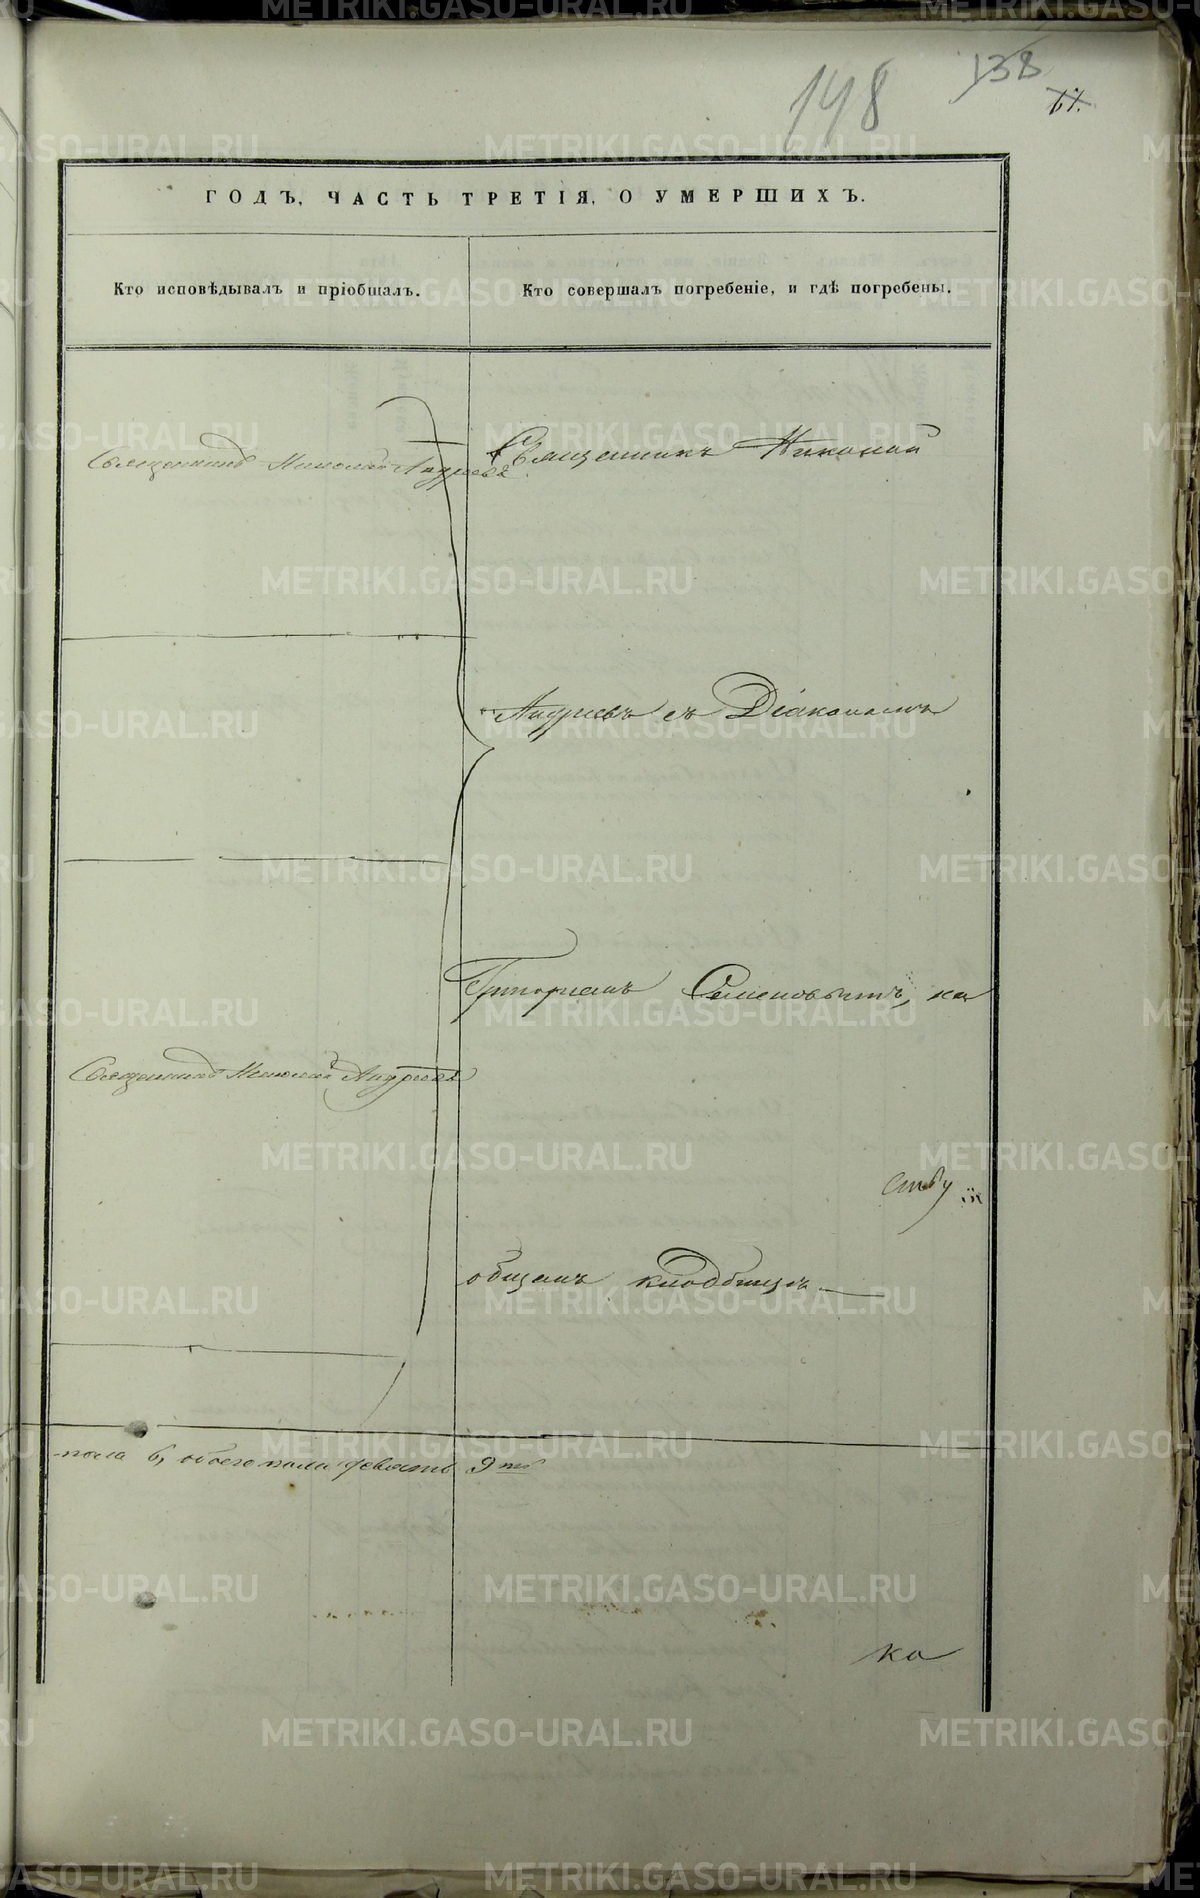 138
148
61.
ГОДЪ, ЧАСТЬ ТРЕТІЯ, О УМЕРШИХЪ.
Кто исповѣдывалъ и пріобщалъ.
Кто совершалъ погребеніе, и гдѣ погребены.
Священникъ Николай Андреевъ
Священникъ Николай
Андреевъ съ Діакономъ
Григоріемъ Семеновымъ, на
Священникъ Николай Андреевъ
общемъ кладбищѣ
пола 6, обоего пола девять 9
ка
METRIKI.GASO-URAL.RU